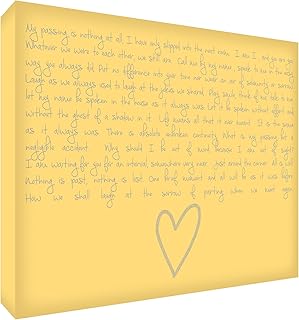 My passing is nothing at all, I have only slipped into the next room. I am I and you are you
Whatever we were to each other we still are. Call me by my name, speak to me in the easy
way you always did. Put no difference into your tone wear no air or solemnity or sorrow
Laugh as we always used to laugh at the jokes we shared. Play, smile, think of me
let my name be spoken in the house as it always was. Let it be spoken without effort
without the ghost of a shadow on it. Life means all that it ever meant. It is the same
as it always was. There is absolute unbroken continuity. What is my passing but a
negligible accident. Why should I be out of mind because I am out of sight?
I am waiting for you for an interval somewhere very near just around the corner all is well
Nothing is past, nothing is lost. One brief moment and all will be as it was before
How we shall laugh at the sorrow of parting when we meet again.